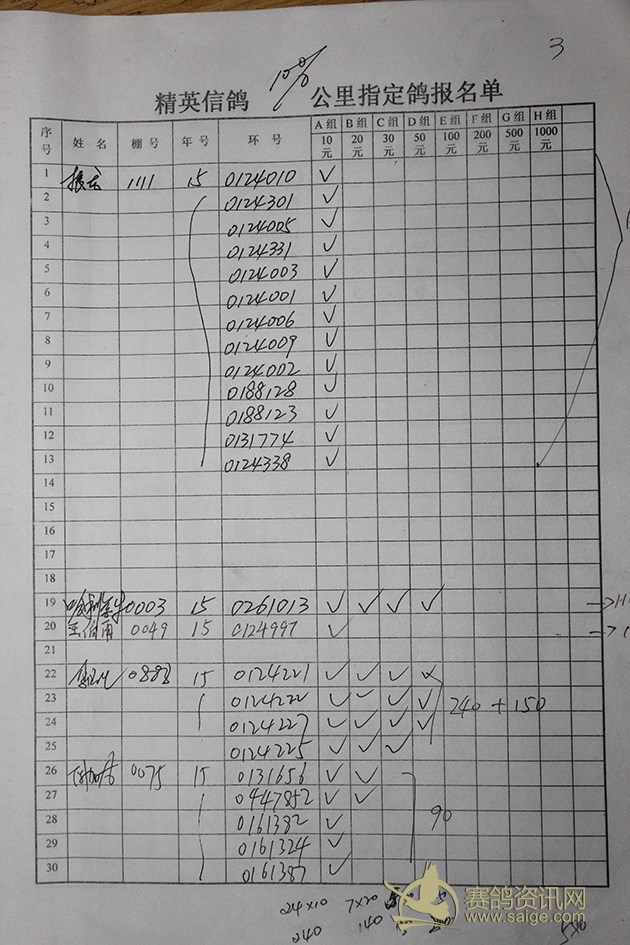 3
精英信鸽 公里指定鸽报名单
序号 姓名 棚号 年号 环号 A组10元 B组20元 C组30元 D组50元 E组100元 F组200元 G组500元 H组1000元
1 1111 15 0124010 ✓
2 0124301 ✓
3 0124005 ✓
4 0124331 ✓
5 0124003 ✓
6 0124001 ✓
7 0124006 ✓
8 0124009 ✓
9 0124002 ✓
10 0188128 ✓
11 0188123 ✓
12 0131774 ✓
13 0124338 ✓
14
15
16
17
18
19 0003 15 0261013 ✓ ✓ ✓ ✓
20 0049 15 0124997 ✓
21
22 15 0124221 ✓ ✓ ✓ ✓
23 0124222 ✓ ✓ ✓ ✓ 240 + 150
24 0124227 ✓ ✓ ✓ ✓
25 0124225 ✓ ✓ ✓
26 0075 15 0131656 ✓ ✓
27 0447852 ✓ ✓
28 0161382 ✓ 90
29 0161324 ✓
30 0161387 ✓
24×10 7×20
240 140
赛鸽资讯网
www.saige.com